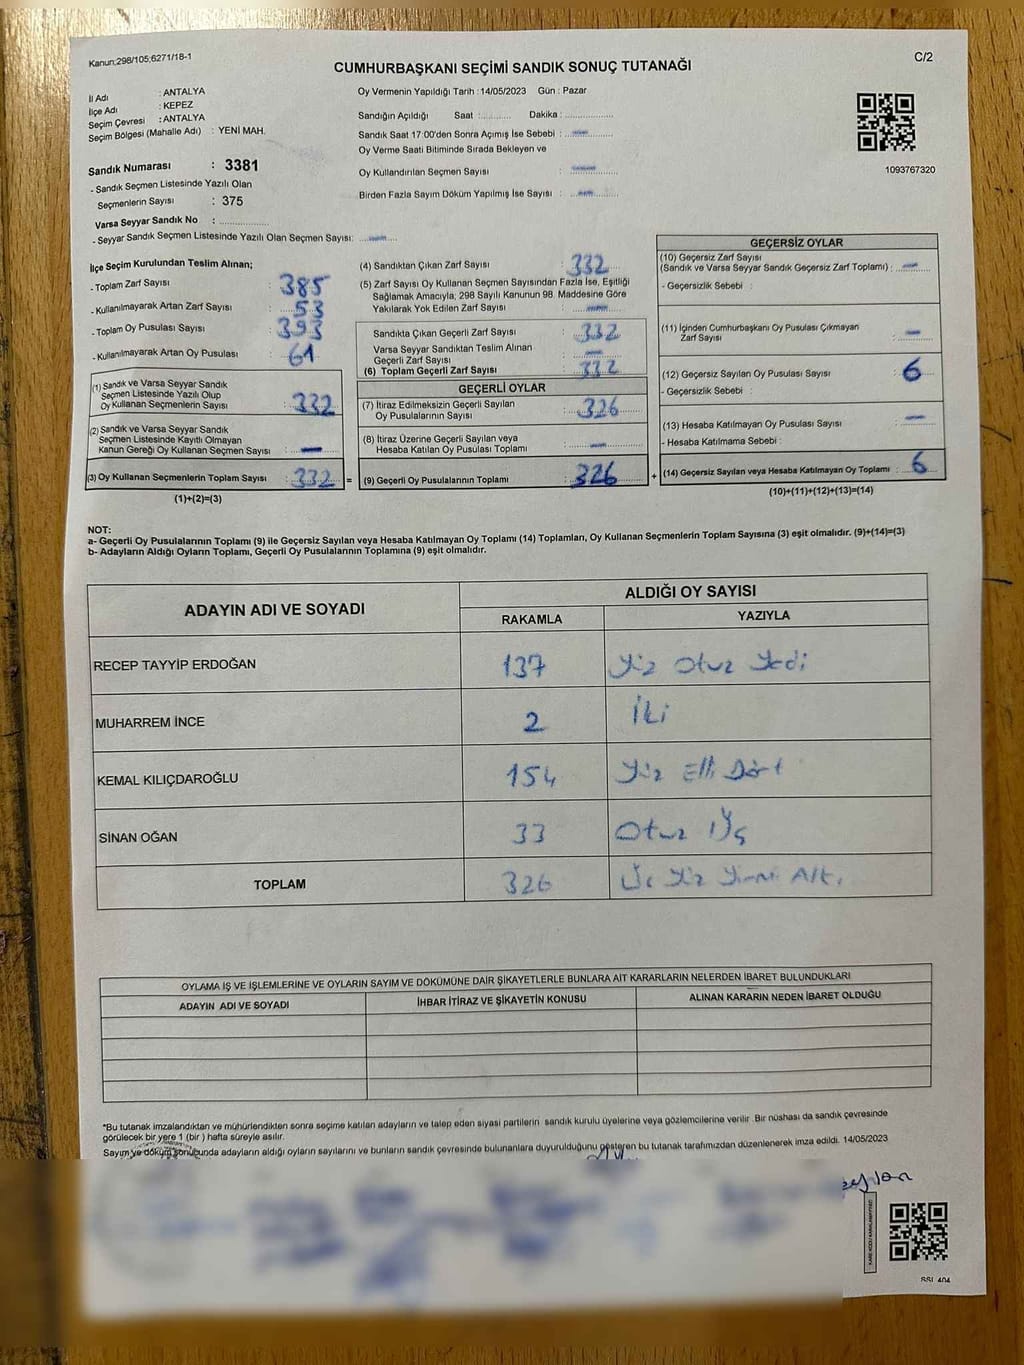 Kanun;298/105;6271/18-1
C/2
CUMHURBAŞKANI SEÇİMİ SANDIK SONUÇ TUTANAĞI
İl Adı : ANTALYA
İlçe Adı : KEPEZ
Seçim Çevresi : ANTALYA
Seçim Bölgesi (Mahalle Adı) : YENİ MAH.
Sandık Numarası : 3381
- Sandık Seçmen Listesinde Yazılı Olan
Seçmenlerin Sayısı : 375
Varsa Seyyar Sandık No :
- Seyyar Sandık Seçmen Listesinde Yazılı Olan Seçmen Sayısı: —
Oy Vermenin Yapıldığı Tarih : 14/05/2023 Gün : Pazar
Sandığın Açıldığı Saat : Dakika :
Sandık Saat 17:00'den Sonra Açımış İse Sebebi : —
Oy Verme Saati Bitiminde Sırada Bekleyen ve
Oy Kullandırılan Seçmen Sayısı : —
Birden Fazla Sayım Döküm Yapılmış İse Sayısı : —
1093767320
İlçe Seçim Kurulundan Teslim Alınan;
- Toplam Zarf Sayısı : 385
- Kullanılmayarak Artan Zarf Sayısı : 53
- Toplam Oy Pusulası Sayısı : 393
- Kullanılmayarak Artan Oy Pusulası : 61
(1) Sandık ve Varsa Seyyar Sandık
Seçmen Listesinde Yazılı Olup
Oy Kullanan Seçmenlerin Sayısı : 332
(2) Sandık ve Varsa Seyyar Sandık
Seçmen Listesinde Kayıtlı Olmayan
Kanun Gereği Oy Kullanan Seçmen Sayısı : —
(3) Oy Kullanan Seçmenlerin Toplam Sayısı : 332 =
(1)+(2)=(3)
(4) Sandıktan Çıkan Zarf Sayısı : 332
(5) Zarf Sayısı Oy Kullanan Seçmen Sayısından Fazla İse, Eşitliği
Sağlamak Amacıyla; 298 Sayılı Kanunun 98. Maddesine Göre
Yakılarak Yok Edilen Zarf Sayısı : —
Sandıkta Çıkan Geçerli Zarf Sayısı : 332
Varsa Seyyar Sandıktan Teslim Alınan
Geçerli Zarf Sayısı : —
(6) Toplam Geçerli Zarf Sayısı : 332
GEÇERLİ OYLAR
(7) İtiraz Edilmeksizin Geçerli Sayılan
Oy Pusulalarının Sayısı : 326
(8) İtiraz Üzerine Geçerli Sayılan veya
Hesaba Katılan Oy Pusulası Toplamı : —
(9) Geçerli Oy Pusulalarının Toplamı : 326 +
GEÇERSİZ OYLAR
(10) Geçersiz Zarf Sayısı
(Sandık ve Varsa Seyyar Sandık Geçersiz Zarf Toplamı) : —
- Geçersizlik Sebebi :
(11) İçinden Cumhurbaşkanı Oy Pusulası Çıkmayan
Zarf Sayısı : —
(12) Geçersiz Sayılan Oy Pusulası Sayısı : 6
- Geçersizlik Sebebi :
(13) Hesaba Katılmayan Oy Pusulası Sayısı : —
- Hesaba Katılmama Sebebi :
(14) Geçersiz Sayılan veya Hesaba Katılmayan Oy Toplamı : 6
(10)+(11)+(12)+(13)=(14)
NOT:
a- Geçerli Oy Pusulalarının Toplamı (9) ile Geçersiz Sayılan veya Hesaba Katılmayan Oy Toplamı (14) Toplamları, Oy Kullanan Seçmenlerin Toplam Sayısına (3) eşit olmalıdır. (9)+(14)=(3)
b- Adayların Aldığı Oyların Toplamı, Geçerli Oy Pusulalarının Toplamına (9) eşit olmalıdır.
ADAYIN ADI VE SOYADI
ALDIĞI OY SAYISI
RAKAMLA YAZIYLA
RECEP TAYYİP ERDOĞAN 137 Yüz Otuz Yedi
MUHARREM İNCE 2 İki
KEMAL KILIÇDAROĞLU 154 Yüz Elli Dört
SİNAN OĞAN 33 Otuz Üç
TOPLAM 326 Üç Yüz Yirmi Altı
OYLAMA İŞ VE İŞLEMLERİNE VE OYLARIN SAYIM VE DÖKÜMÜNE DAİR ŞİKAYETLERLE BUNLARA AİT KARARLARIN NELERDEN İBARET BULUNDUKLARI
ADAYIN ADI VE SOYADI İHBAR İTİRAZ VE ŞİKAYETİN KONUSU ALINAN KARARIN NEDEN İBARET OLDUĞU
*Bu tutanak imzalandıktan ve mühürlendikten sonra seçime katılan adayların ve talep eden siyasi partilerin sandık kurulu üyelerine veya gözlemcilerine verilir. Bir nüshası da sandık çevresinde
görülecek bir yere 1 (bir ) hafta süreyle asılır.
Sayım ve döküm sonucunda adayların aldığı oyların sayılarını ve bunların sandık çevresinde bulunanlara duyurulduğunu gösteren bu tutanak tarafımızdan düzenlenerek imza edildi. 14/05/2023